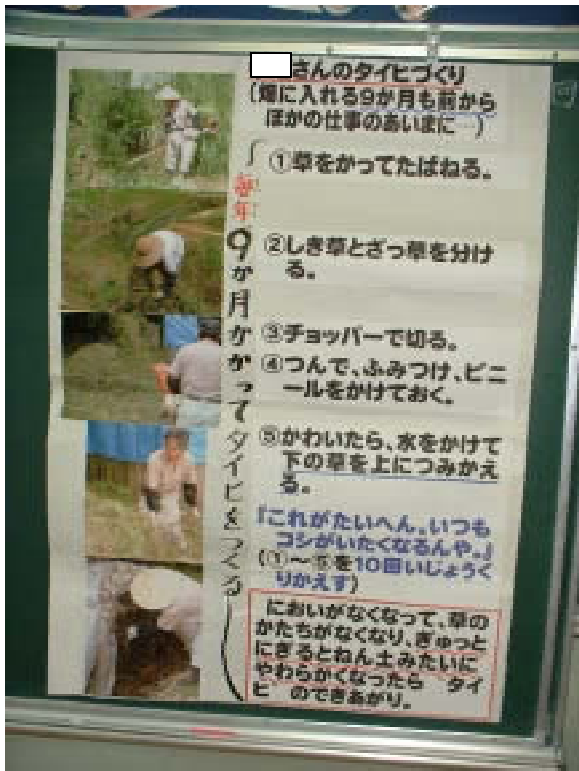 さんのタイヒづくり
(畑に入れる9か月も前から
ほかの仕事のあいまに…)
毎年9か月かかってタイヒをつくる
①草をかってたばねる。
②しき草とざっ草を分け
る。
③チョッパーで切る。
④つんで、ふみつけ、ビニ
ールをかけておく。
⑤かわいたら、水をかけて
下の草を上につみかえ
る。
「これがたいへん。いつも
コシがいたくなるんや。」
(①〜⑤を10回いじょうく
りかえす)
においがなくなって、草の
かたちがなくなり、ぎゅっと
にぎるとねん土みたいに
やわらかくなったら タイ
ヒ のできあがり。